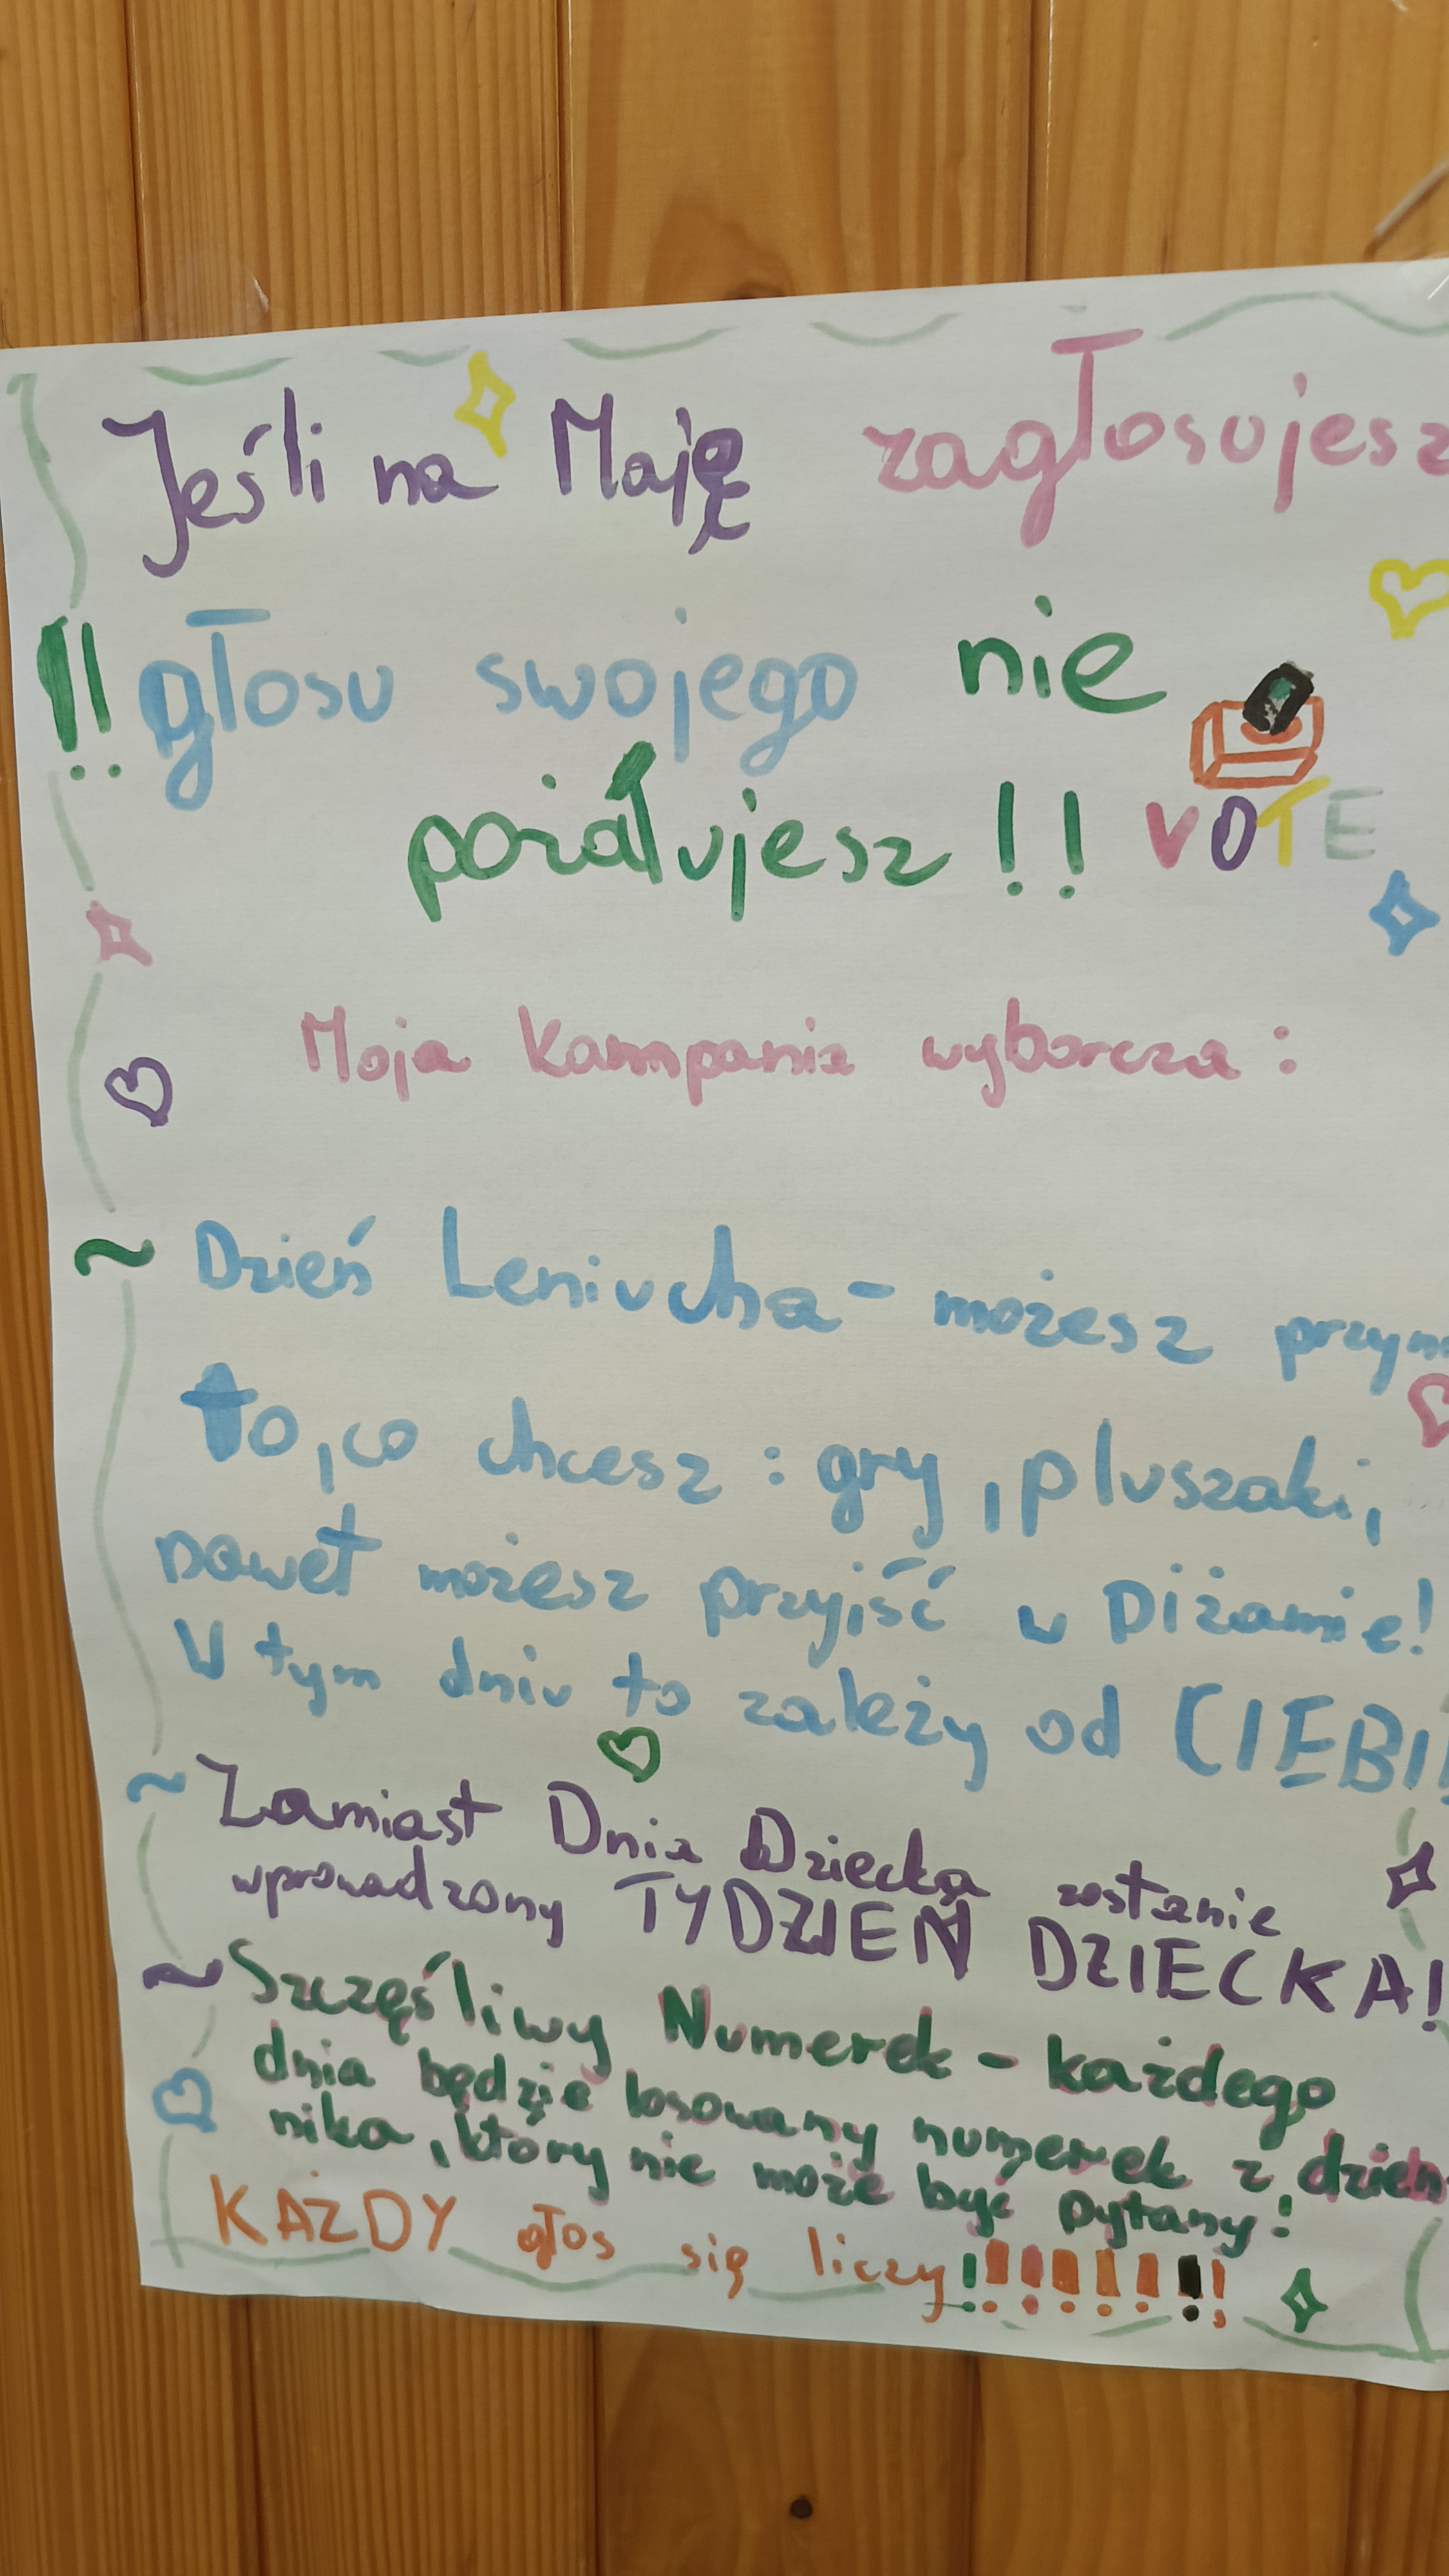 Jeśli na Maję zagłosujesz
!! głosu swojego nie
pożałujesz !! VOTE
Moja kampania wyborcza :
~ Dzień Leniucha - możesz
to, co chcesz : gry, pluszaki,
nawet możesz przyjść w piżamie!
W tym dniu to zależy od
~ Zamiast Dnia Dziecka zostanie
wprowadzony TYDZIEŃ DZIECKA!
~ Szczęśliwy Numerek - każdego
dnia będzie losowany numerek z dzien-
nika, który nie może być pytany!
KAŻDY głos się liczy!!!!!!!!